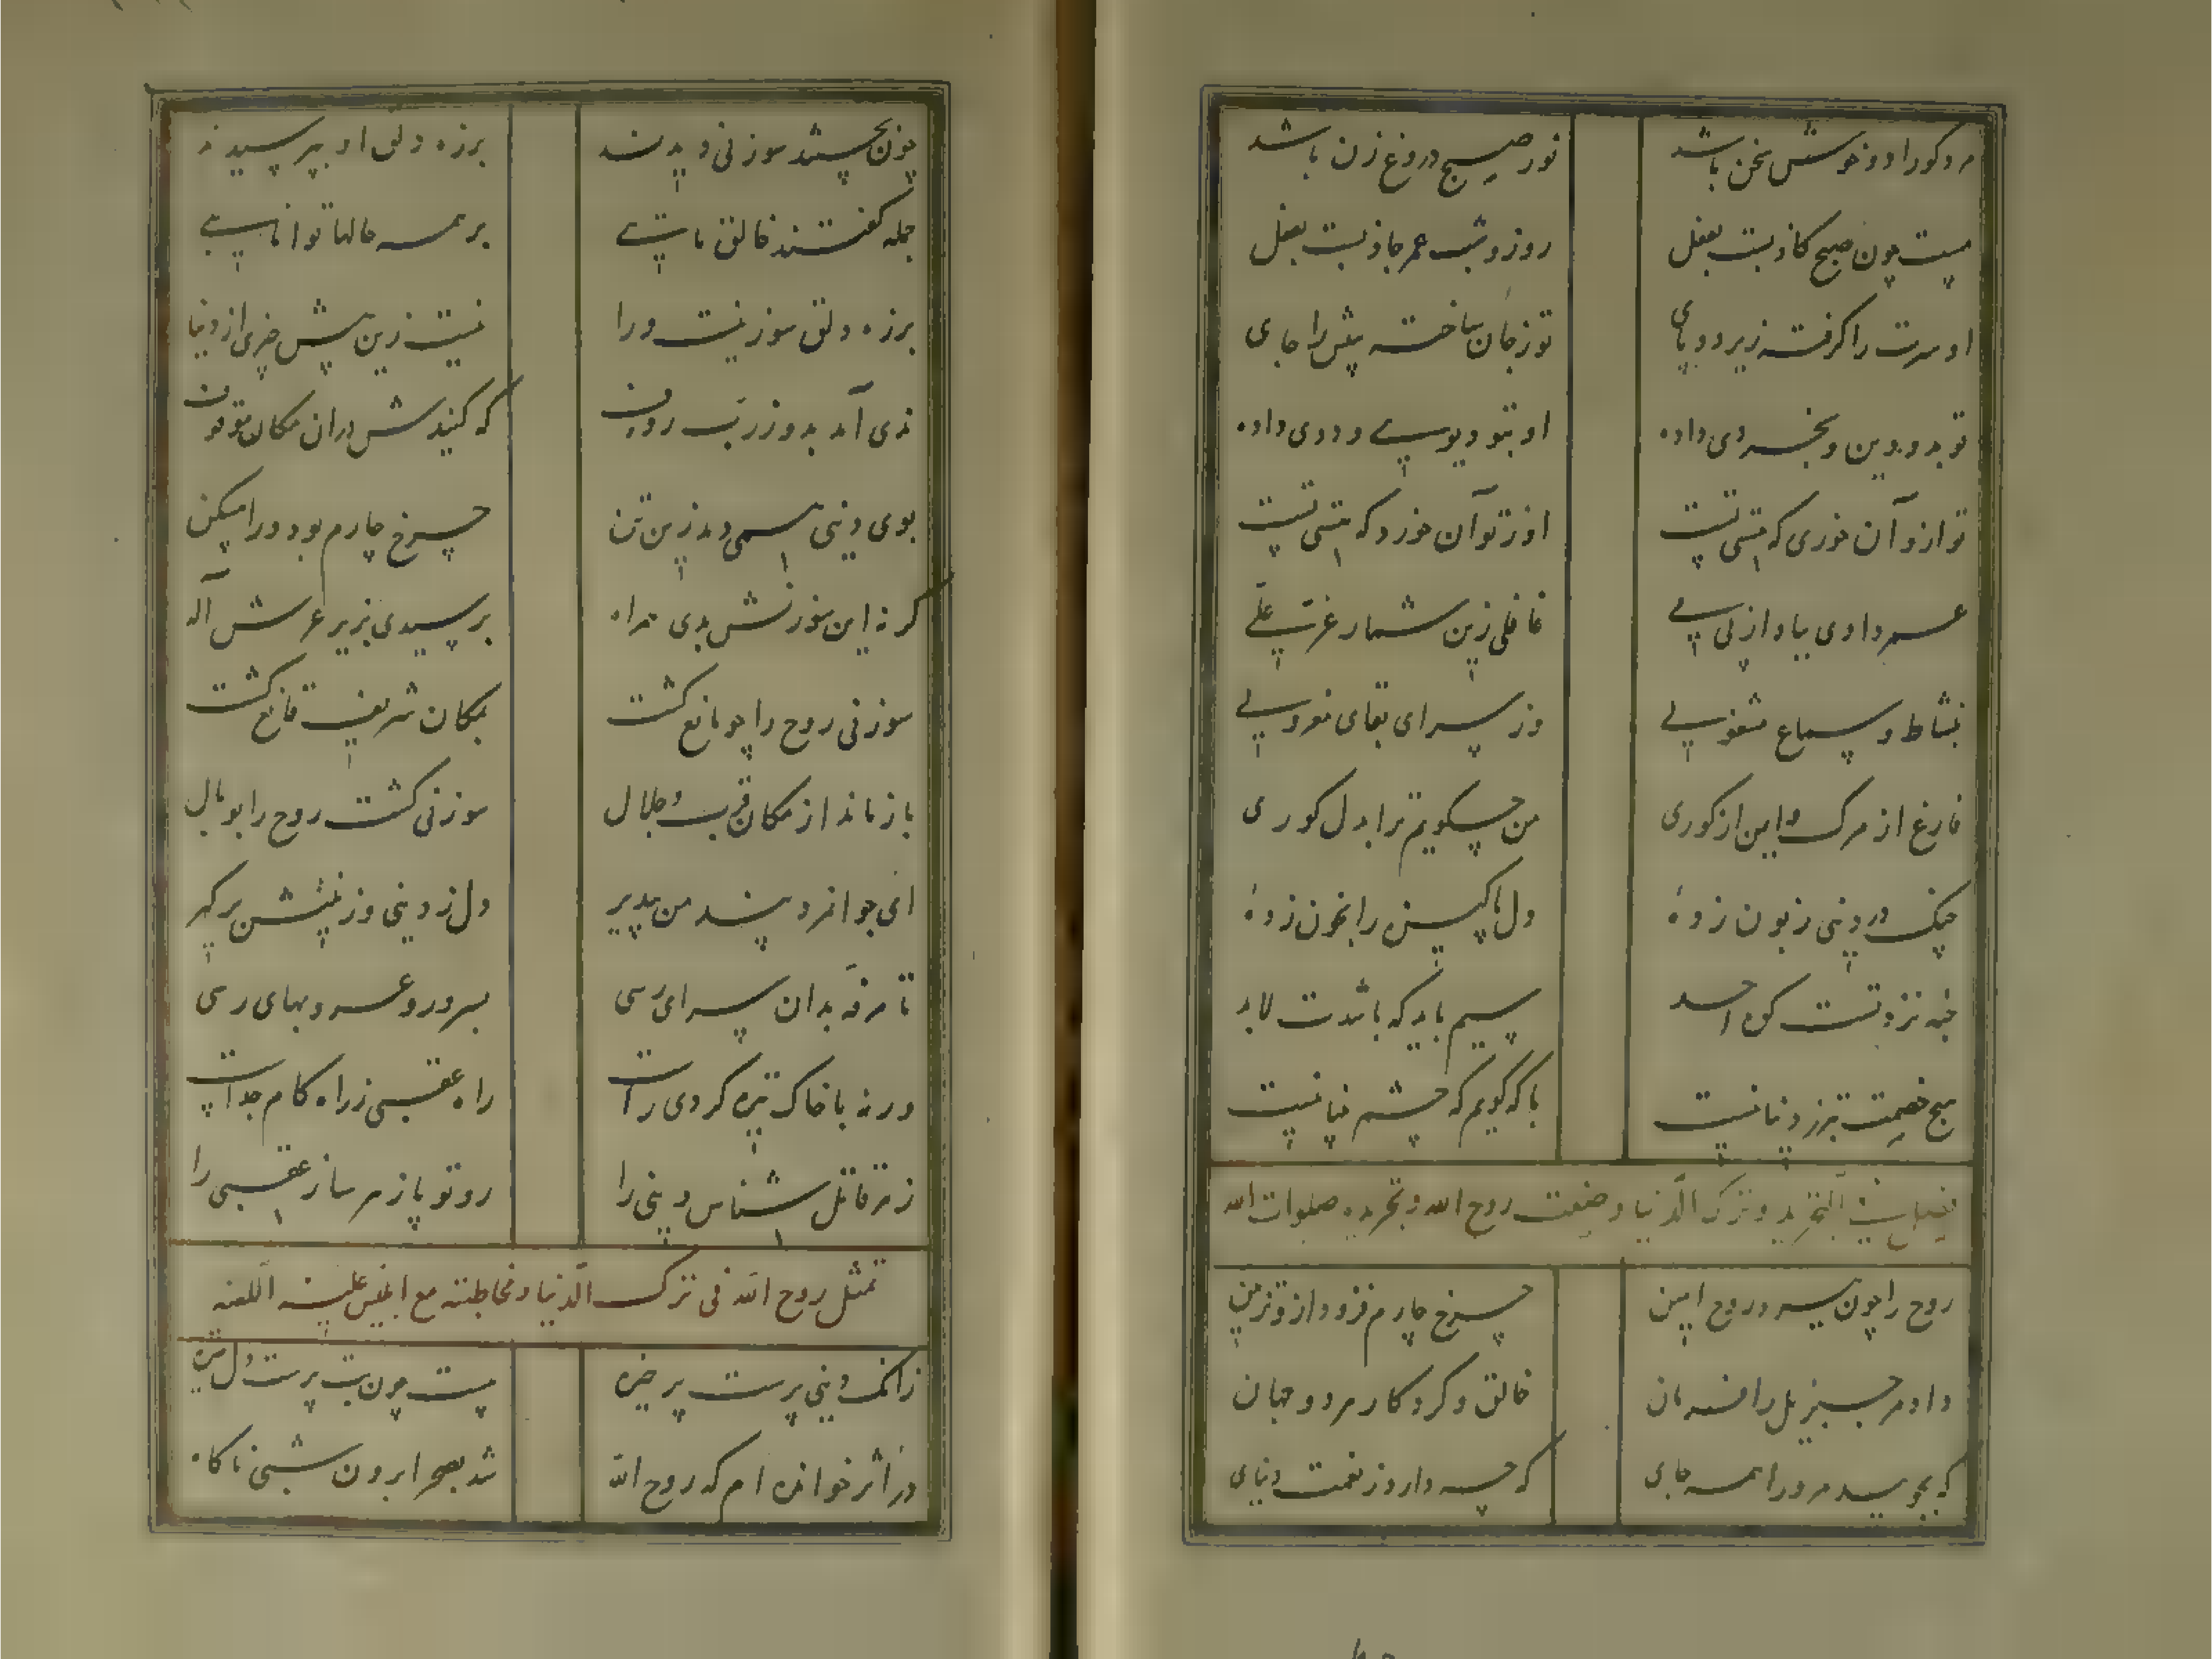 مرد کو را دو زخوش سخن باشد نور صبح دروغ زن باشد
هست چون صبح کاذبت بفعل روز و شب عمر جاذبت بفعل
او سرت را گرفته زیر دو پای تو ز جان ساخته پیش را جای
تو بدو دین و بخردی داده او بتو دیوی و ددی داده
تو ازو آن خوری که مستی تست او ز تو آن خورد که هستی تست
عمر دادی بباد از پی
غافلی زین شمار عز علی
بنشاط و سماع مشغولی وز سرای بقای معزولی
فارغ از مرگ و ایمن از گوری من چگویم ترا بدل کوری
چنگ در دینی زبون زدهٔ دل پاکیزه را بخون زدهٔ
حبه نزد تست کوه احد سیم باید که باشدت لابد
هیچ خصمت بتر ز دنیا نیست با که گویم که چشم بینا نیست
فی التجرید و ترک الدنیا و صفت روح الله و تجریده صلوات الله
روح را چون ببرد روح امین چرخ چارم فزود ازو تزیین
داد مر جبرئیل را فرمان خالق و کردگار هر دو جهان
که بجویید مر ورا همه جای که چه دارد ز نعمت دنیای
چون بجستند سوزنی دیدند بر زه دلق او بپرسیدند
جمله گفتند خالق مائی بر همه حالها توانائی
بر زه دلق سوزنیست ورا نیست زین بیش چیزی از دنیا
ندی آمد بدو ز رب رؤف که کنیدش دران مکان موقوف
بوی دینی همی دمد زین تن چرخ چارم بود ورا مسکن
گر نه این سوزنش بدی همراه برسیدی بزیر عرش آله
سوزنی روح را چو مانع گشت بمکان شریف قانع گشت
باز ماند از مکان قرب و جلال سوزنی گشت روح را بوبال
ای جوانمرد پند من بپذیر دل ز دینی و زینتش برگیر
تا مرفه بدان سرای رسی بسرور و عز و بهای رسی
ورنه با خاک تیره گردی راست راه عقبی ز راه کام جداست
زهر قاتل شناس دینی را رو تو پازهر ساز عقبی را
تمثل روح الله فی ترک الدنیا و مخاطبته مع ابلیس علیه اللعنه
زانک دینی پرست پر خیره هست چون بت پرست دل تیره
در اثر خوانده ام که روح الله شد بصحرا برون شبی ناگاه